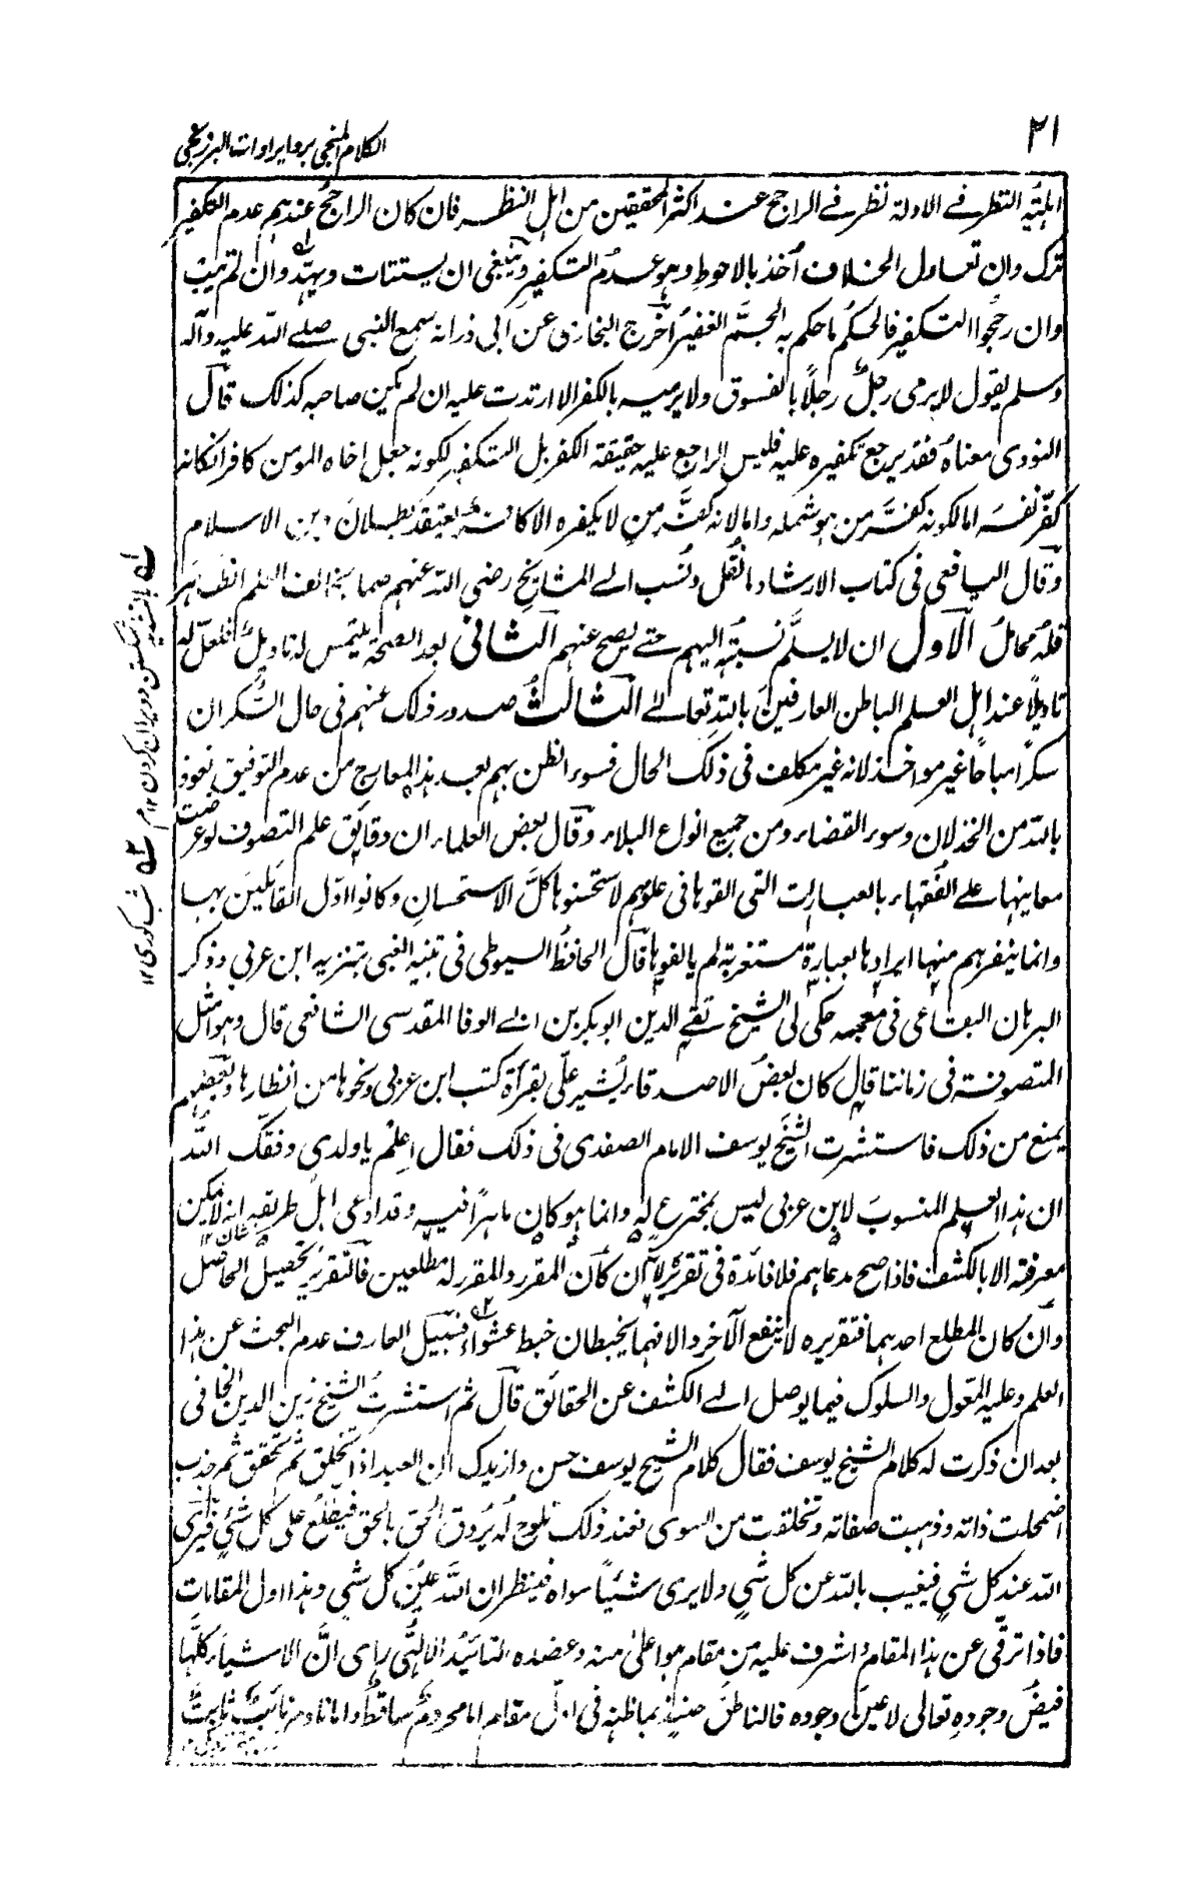 ٢١
الكلام المنجي برد ايرادات البرزنجي
اهلية النظر في الادلة نظر في الراجح عند اكثر المحققين من اهل النظر فان كان الراجح عندهم عدم التكفير
ترك وان تعادل الخلاف أخذ بالاحوط وهو عدم التكفير وينبغي ان يستتاب ويهدد وان لم يتب
وان رجحوا التكفير فالحكم ما حكم به الجم الغفير اخرج البخاري عن ابي ذر انه سمع النبي صلى الله عليه وآله
وسلم يقول لا يرمي رجل رجلاً بالفسوق ولا يرميه بالكفر الا ارتدت عليه ان لم يكن صاحبه كذلك قال
النووي معناه فقد يرجع تكفيره عليه فليس الراجع عليه حقيقة الكفر بل التكفير لكونه جعل اخاه المومن كافرا فكانه
كفر نفسه اما لكونه كفر من هو مثله واما لانه كفر من لا يكفره الا كافر يعتقد بطلان دين الاسلام
وقال اليافعي في كتاب الارشاد ما نقل ونسب الى المشايخ رضي الله عنهم مما يخالف العلم الظاهر
فله محامل الاول ان لا يسلم نسبته اليهم حتى يصح عنهم الثاني بعد الصحة يلتمس له تاويل فلعل له
تاويلاً عند اهل العلم الباطن العارفين بالله تعالى الثالث صدور ذلك عنهم في حال السكر ان
سكراً مباحاً غير مواخذ لانه غير مكلف في ذلك الحال فسوء الظن بهم بعد هذه المعارج من عدم التوفيق نعوذ
بالله من الخذلان وسوء القضاء ومن جميع انواع البلاء وقال بعض العلماء ان دقايق علم التصوف لو عرضت
معانيها على الفقهاء بالعبارات التي القوها في علومهم لاستحسنوها كل الاستحسان وكانوا اول القائلين بها
وانما ينفرهم منها ايرادها بعبارة مستغربة لم يالفوها قال الحافظ السيوطي في تنبيه الغبي بتنزيه ابن عربي وذكر
البرهان البقاعي في معجمه حكى لي الشيخ تقي الدين ابو بكر بن ابي الوفا المقدسي الشافعي قال وهو امثل
المتصوفة في زماننا قال كان بعض الاصدقاء يشير علي بقراة كتب ابن عربي ونحوها من انظارها وبعضهم
يمنع من ذلك فاستشرت الشيخ يوسف الامام الصفدي في ذلك فقال اعلم يا ولدي وفقك الله
ان هذا العلم المنسوب لابن عربي ليس بمخترع له وانما هو كان ماهراً فيه وقد ادعى اهل طريقه انه لا يمكن
معرفته الا بالكشف فاذا صح مدعاهم فلا فائدة في تقريره لانه ان كان المقرر والمقرر له مطلعين فالتقرير تحصيل الحاصل
وان كان المطلع احدهما فتقريره لا ينفع الآخر والا فهما يخبطان خبط عشواء فسبيل العارف عدم البحث عن هذا
العلم وعليه المعول والسلوك فيما يوصل الى الكشف عن الحقائق قال ثم استشرت الشيخ زين الدين الخافي
بعد ان ذكرت له كلام الشيخ يوسف فقال كلام الشيخ يوسف حسن وازيدك ان العبد اذا تخلق ثم تحقق ثم جذب
اضمحلت ذاته وذهبت صفاته وتخلقت من السوى فعند ذلك تلوح له بروق الحق بالحق فيطلع على كل شئ فيرى
الله عند كل شي فيغيب بالله عن كل شي ولا يرى شيئاً سواه فينظر ان الله عين كل شي وهذا اول المقامات
فاذا ترقى عن هذا المقام واشرف عليه من مقام هو اعلى منه وعضده التائيد الالهي راى ان الاشياء كلها
فيض وجوده تعالى لا عين وجوده فالناطق حينئذ بما ظنه في اول مقام اما محروم ساقط واما نادم تائب
له بالتشديد شكستن و ويران كردن ١٢ م
٢ه شب كوري ١٢